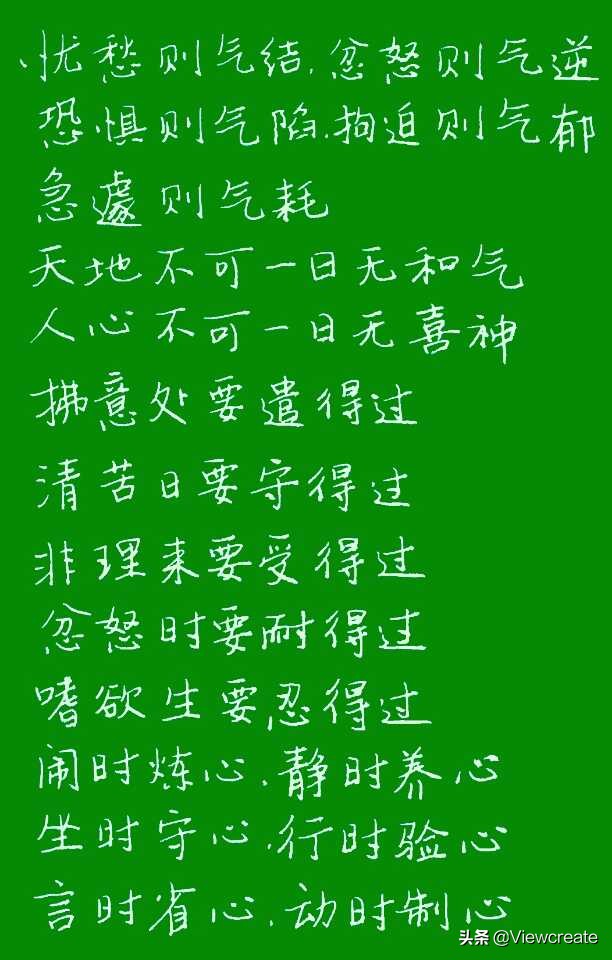 忧愁则气结.忿怒则气逆
恐惧则气陷.拘迫则气郁
急遽则气耗
天地不可一日无和气
人心不可一日无喜神
拂意处要遣得过
清苦日要守得过
非理来要受得过
忿怒时要耐得过
嗜欲生要忍得过
闹时炼心.静时养心
坐时守心.行时验心
言时省心.动时制心
头条 @Viewcreate